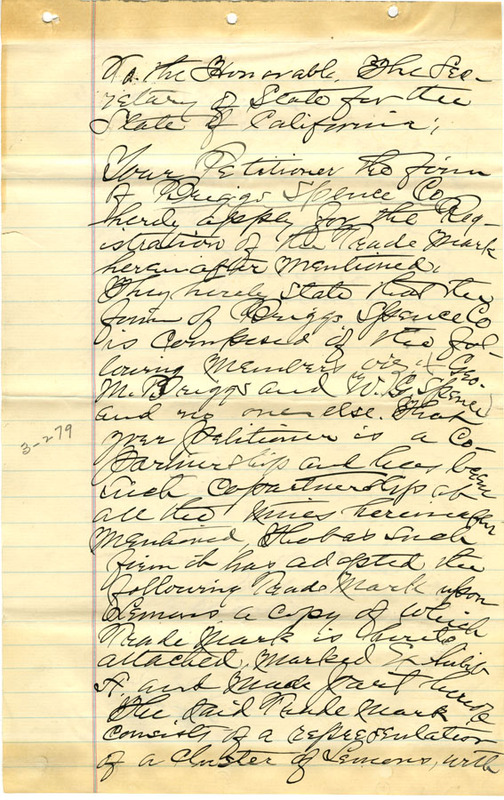 To. the Honorable, The Sec-
retary of State for the
State of California;
Your Petitioner the firm
of Briggs Spence Co
herely apply for the Reg-
istration of the Trade Mark
hereinafter mentioned.
They herely State that the
firm of Briggs Spence Co
is composed of the fol-
lowing Members viz; (Geo.
M. Briggs and W. G. Spence)
and no one else. That
your Petitioner is a Co
Partnership and has been
such copartnership at
all the times hereinafter
Mentioned, that as such
firm it has adopted the
following Trade Mark upon
Lemons, a copy of which
Trade Mark is hereto
attached, Marked Exhibit
A, and Made part hereof
The said Trade Mark
consists of a representation
of a cluster of Lemons, with
3-279